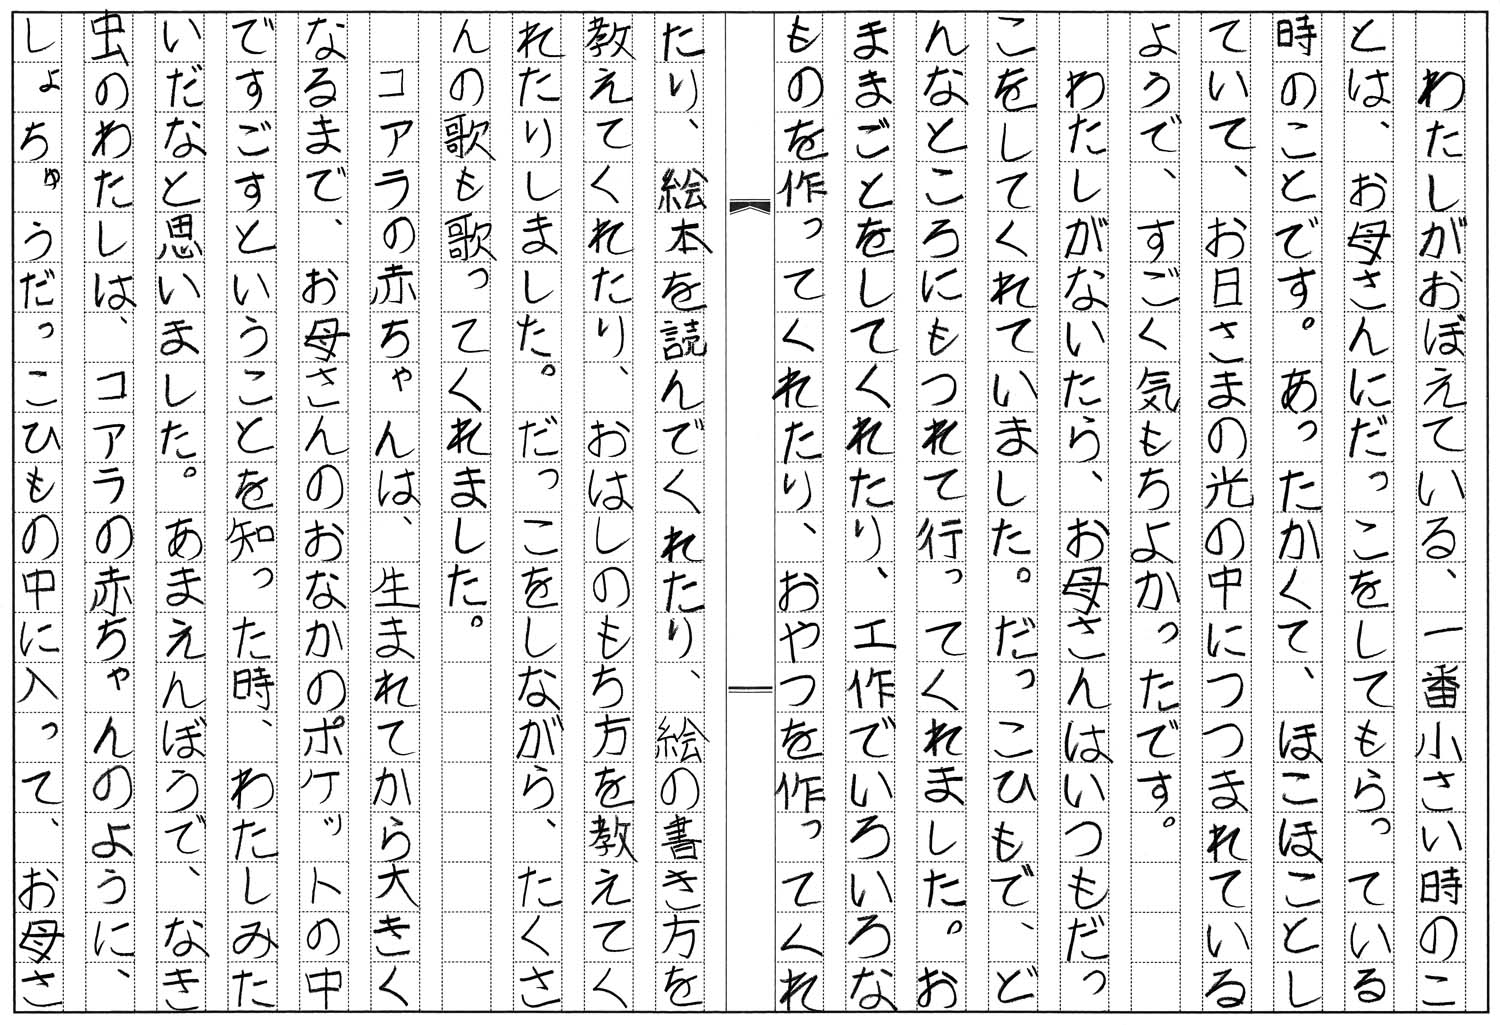 わたしがおぼえている、一番小さい時のこ
とは、お母さんにだっこをしてもらっている
時のことです。あったかくて、ほこほことし
ていて、お日さまの光の中につつまれている
ようで、すごく気もちよかったです。
　わたしがないたら、お母さんはいつもだっ
こをしてくれていました。だっこひもで、ど
んなところにもつれて行ってくれました。お
ままごとをしてくれたり、工作でいろいろな
ものを作ってくれたり、おやつを作ってくれ
たり、絵本を読んでくれたり、絵の書き方を
教えてくれたり、おはしのもち方を教えてく
れたりしました。だっこをしながら、たくさ
んの歌も歌ってくれました。
　コアラの赤ちゃんは、生まれてから大きく
なるまで、お母さんのおなかのポケットの中
ですごすということを知った時、わたしみた
いだなと思いました。あまえんぼうで、なき
虫のわたしは、コアラの赤ちゃんのように、
しょちゅうだっこひもの中に入って、お母さ